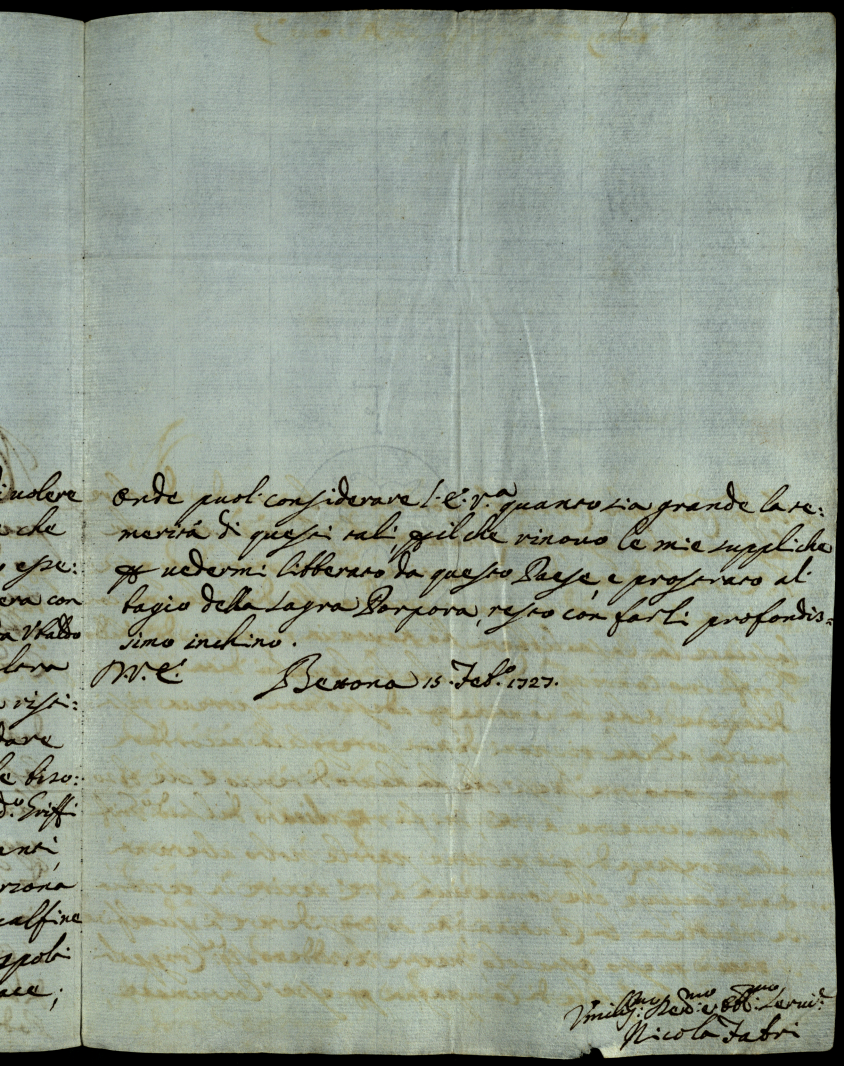 i uolere
che
espe:
era con
Vbaldo
lara
risti:
dare
le biso:
d.º Griffi
enti,
rzona
alfine
apoli
ace;
Onde puol considerare l.E.V.ª quanto sia grande la te:
merità di questi tali, ꝑ il che rinouo le mie suppliche
ꝑ uedermi libberato da questo Paese, e prostrato al
bagio della Sagra Porpora, resto con farli profondis=
simo inchino.
D.V.E. Bettona 15. Feb.º 1727.
Vmiliss.mo Deu.mo et Obb.mo Seruid.e
Nicola Fabri